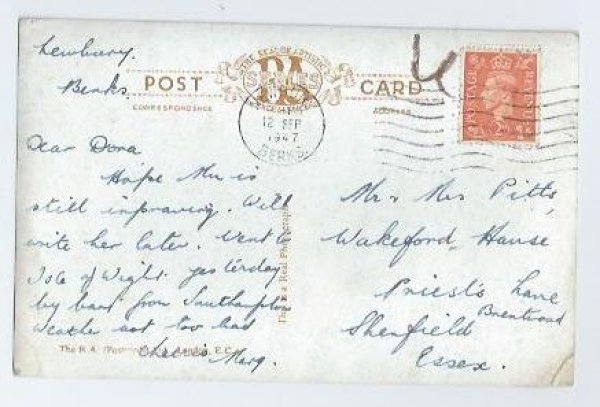 Newbury.
Berks.
POST CARD
CORRESPONDENCE
ADDRESS
12 SEP
1947
BERKS
POSTAGE
REVENUE
Dear Dora
Hope Mu is
still improving. Will
write her later. Went to
Isle of Wight yesterday
by boat from Southampton
Weather not too bad
Cheerio Marg.
This is a Real Photograph
The R.A. E.C.
Mr & Mrs Pitts,
Wakeford House
Priest's Lane
Brentwood
Shenfield
Essex.